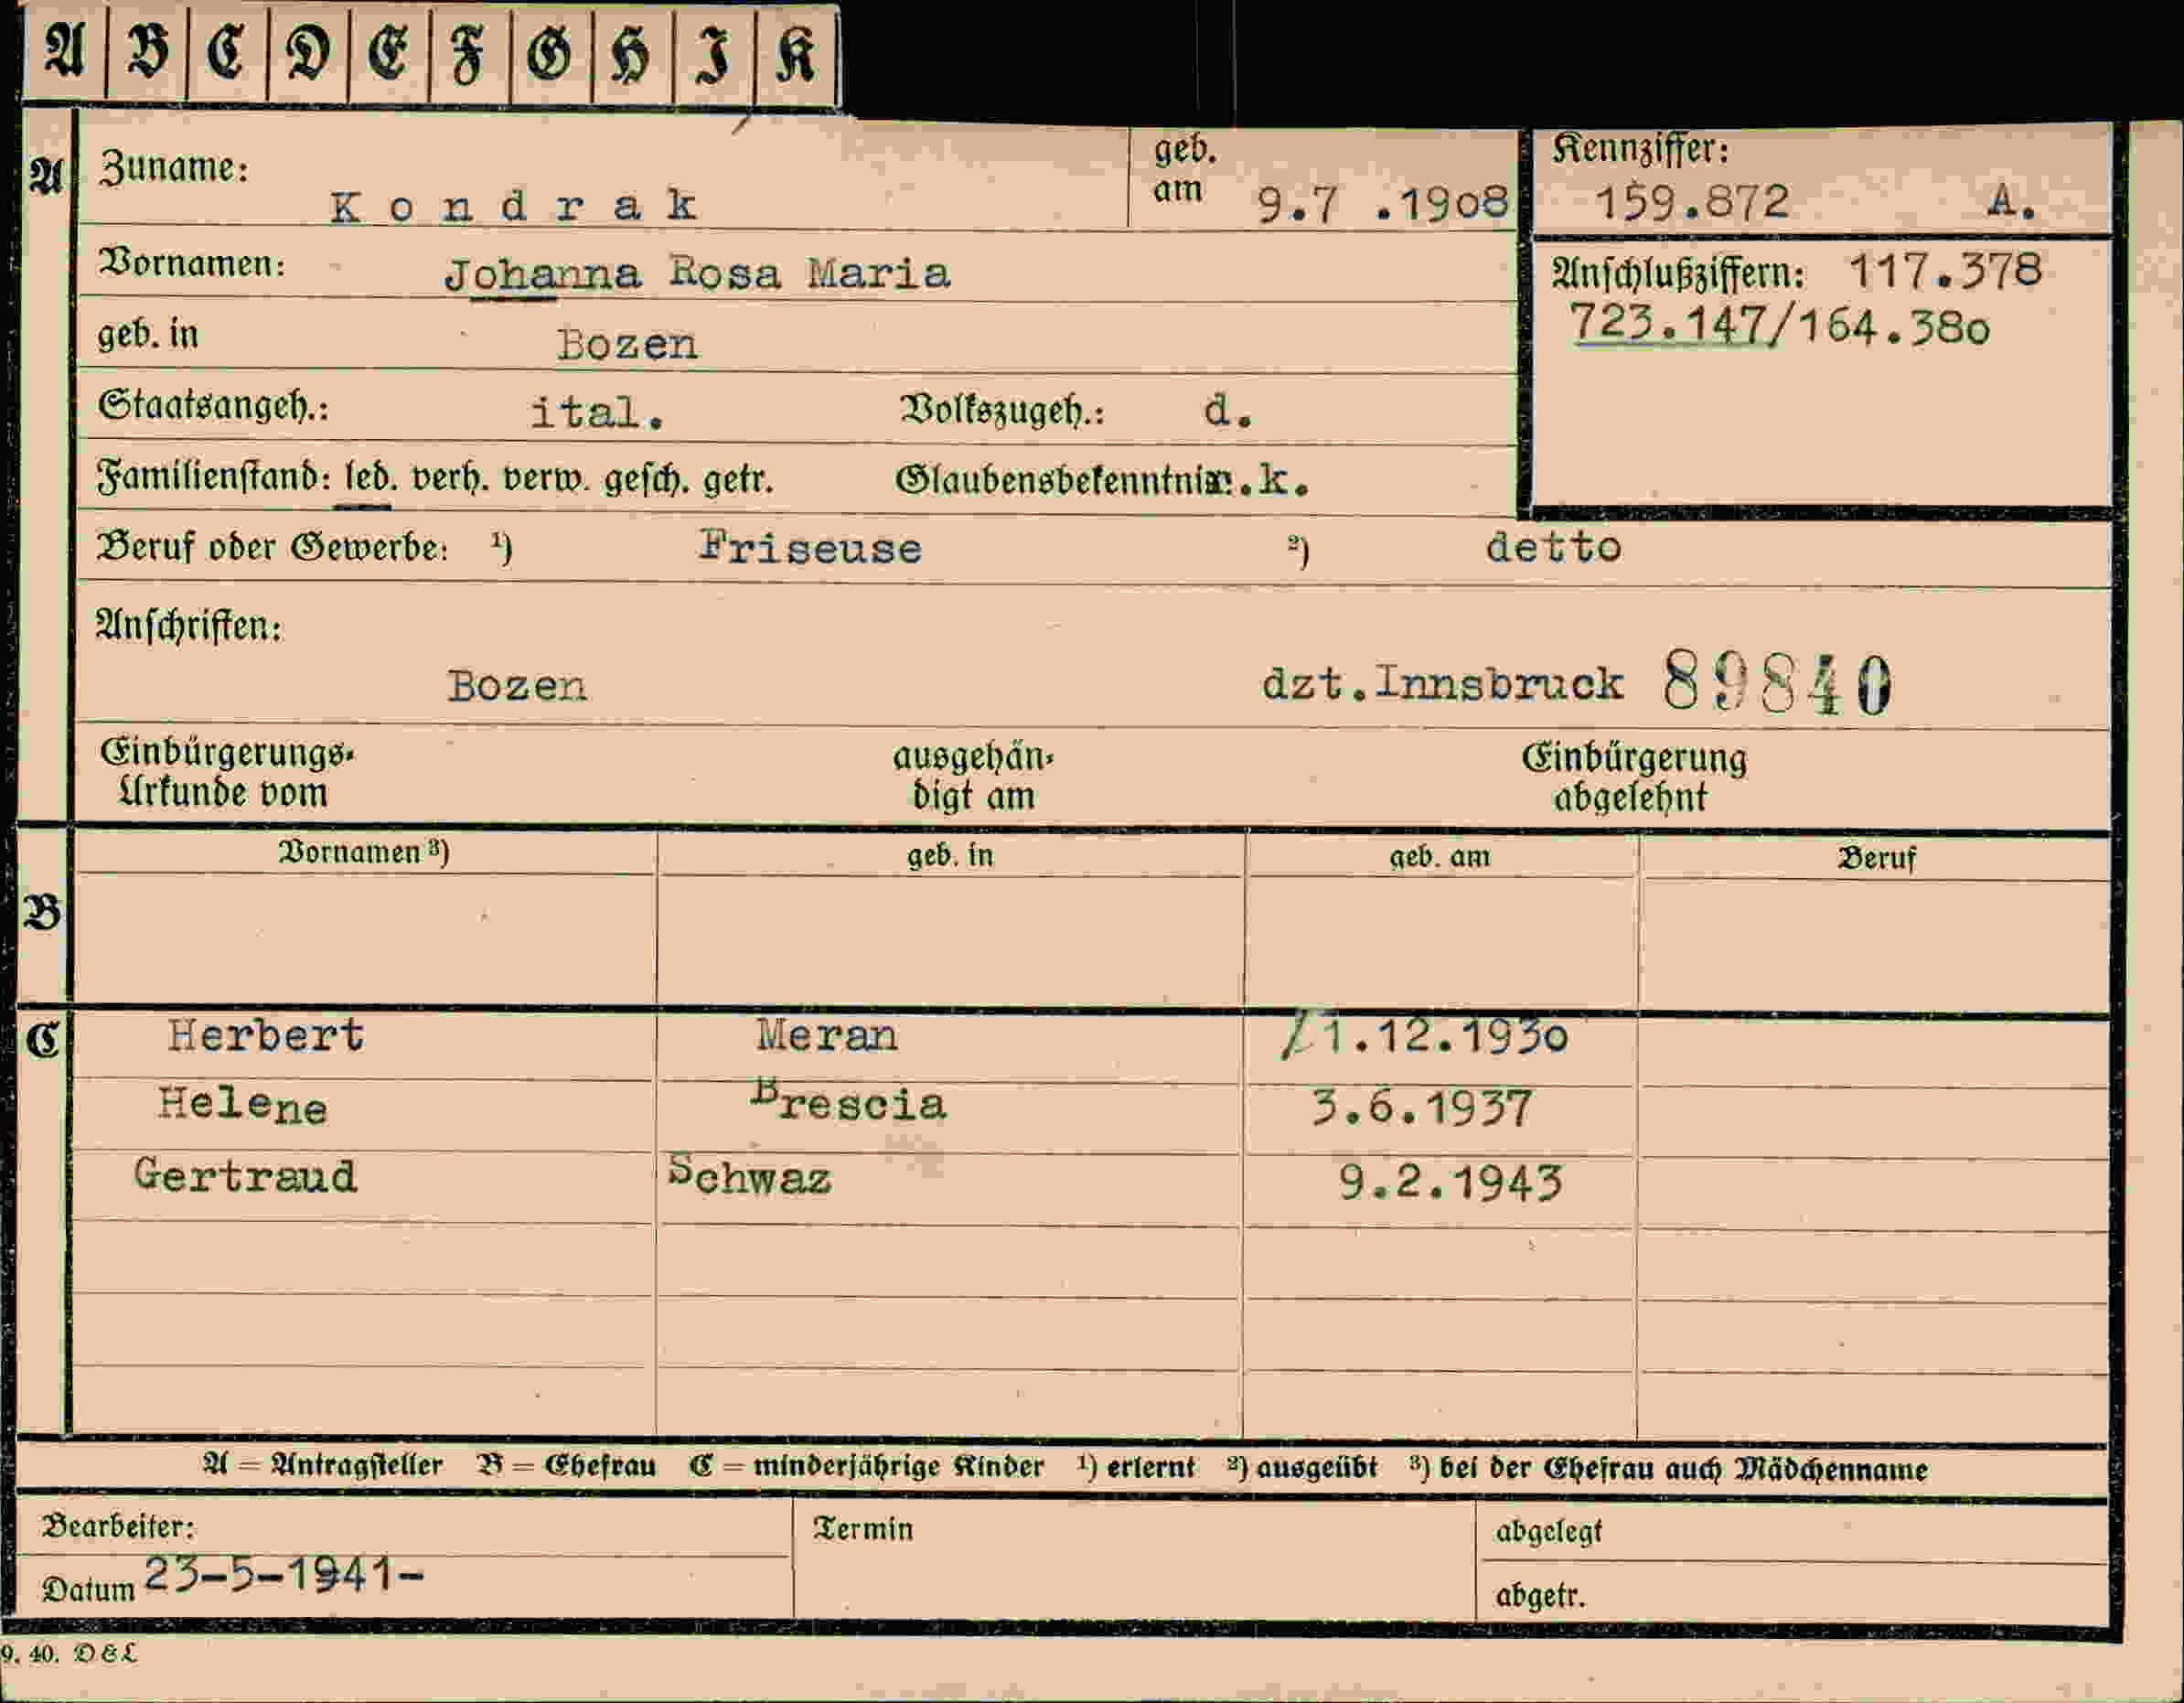 A B C D E F G H I K
A Zuname: Kondrak geb. am 9.7 .1908 Kennziffer: 159.872 A.
Vornamen: Johanna Rosa Maria Anschlußziffern: 117.378
geb. in Bozen 723.147/164.380
Staatsangeh.: ital. Volkszugeh.: d.
Familienstand: led. verh. verw. gesch. getr. Glaubensbekenntnis r.k.
Beruf oder Gewerbe: ¹) Friseuse ²) detto
Anschriften:
Bozen dzt.Innsbruck 89840
Einbürgerungs- ausgehän- Einbürgerung
Urkunde vom digt am abgelehnt
Vornamen ³) geb. in geb. am Beruf
B
C Herbert Meran 1.12.1930
Helene Brescia 3.6.1937
Gertraud Schwaz 9.2.1943
A = Antragsteller B = Ehefrau C = minderjährige Kinder ¹) erlernt ²) ausgeübt ³) bei der Ehefrau auch Mädchenname
Bearbeiter: Termin abgelegt
Datum 23-5-1941- abgetr.
9. 40. D & L